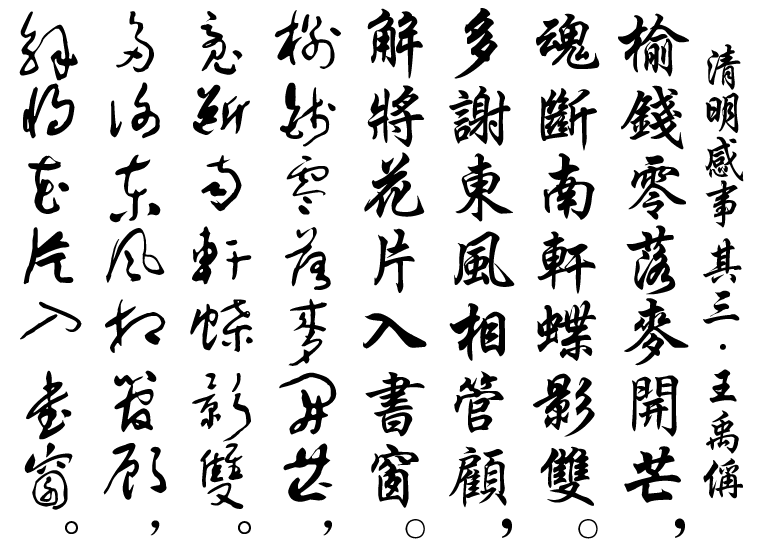 清明感事其三·王禹偁
榆錢零落麥開芒，
魂斷南軒蝶影雙。
多謝東風相管顧，
解將花片入書窗。
榆錢零落麥開芒，
魂斷南軒蝶影雙。
多謝東風相管顧，
解將花片入書窗。